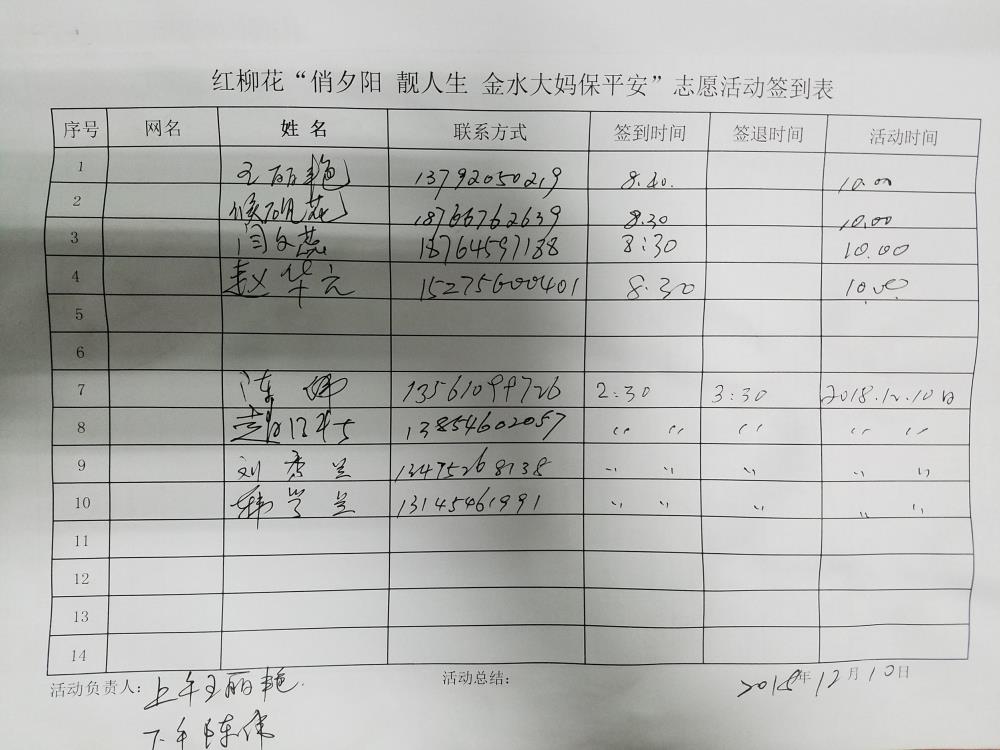 红柳花“俏夕阳 靓人生 金水大妈保平安”志愿活动签到表
序号 网名 姓名 联系方式 签到时间 签退时间 活动时间
1 王丽艳 13792050219 8.40. 10.00
2 侯砚花 18766762639 8.30 10.00
3 闫文燕 18764597188 8:30 10.00
4 赵华云 15275600401 8.30 10.00
5
6
7 陈 13561099726 2:30 3:30 2018.12.10日
8 赵 13854602057 〃 〃 〃 〃 〃
9 刘秀兰 13475268138 〃 〃 〃 〃 〃
10 韩兰 13145461991 〃 〃 〃 〃 〃
11
12
13
14
活动负责人: 上午王丽艳. 活动总结: 2018年12月10日
下午陈伟